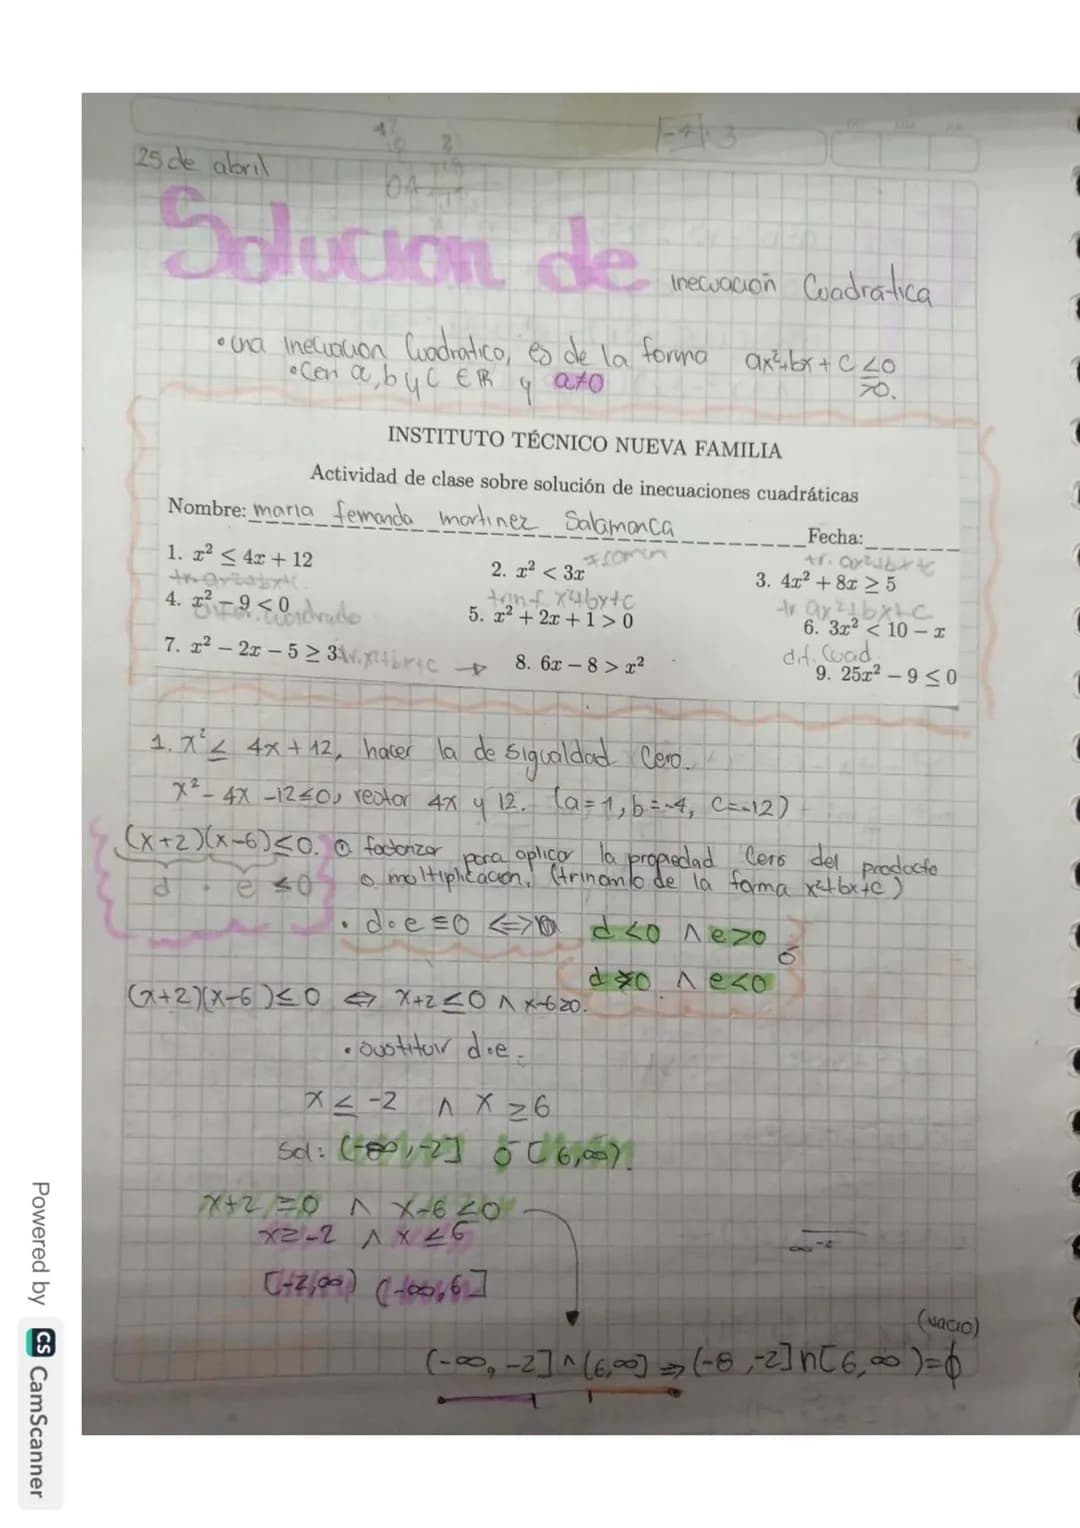 25 de abril
|-4|·3
Solucion de inecuación Cuadratica
• una Inecuacion Cuadratico, es de la forma ax²+bx+c ≤0
• Con a, b y c ∈ ℝ y a≠0 ≥0.
INSTITUTO TÉCNICO NUEVA FAMILIA
Actividad de clase sobre solución de inecuaciones cuadráticas
Nombre: maria fernanda martinez Salamanca Fecha:
1. x² ≤ 4x + 12 2. x² < 3x 3. 4x² + 8x ≥ 5
tr. ax²+bx+c
4. x² − 9 < 0 5. x² + 2x + 1 > 0 6. 3x² < 10 − x
x²+bx+c tr ax²+bx+c
dif. Cuad.
7. x² − 2x − 5 ≥ 3 tr. x²+bx+c 8. 6x − 8 > x² 9. 25x² − 9 ≤ 0
1. x² ≤ 4x + 12, hacer la desigualdad Cero.
x² - 4x -12≤0, restar 4x y 12. (a=1, b=-4, c=-12)
(x+2)(x-6)≤0. factorizar para aplicar la propiedad Cero del producto
d · e ≤0 o multiplicación. (trinomio de la forma x²+bx+c)
• d·e ≤0 ⟺ d <0 ∧ e>0 ó
d ≥0 ∧ e<0
(x+2)(x-6)≤0 ⟺ x+2≤0 ∧ x-6≥0.
• sustituir d·e.
x ≤ -2 ∧ x ≥6
sol: (-∞,-2] ó [6,∞).
x+2 ≥0 ∧ x-6 ≤0
x≥-2 ∧ x ≤6
[-2,∞) (-∞,6]
∞ -2
(vacio)
(-∞, -2] ∧ (6,∞] ⇒ (-8,-2] ∩ [6,∞)=ϕ
Powered by CS CamScanner